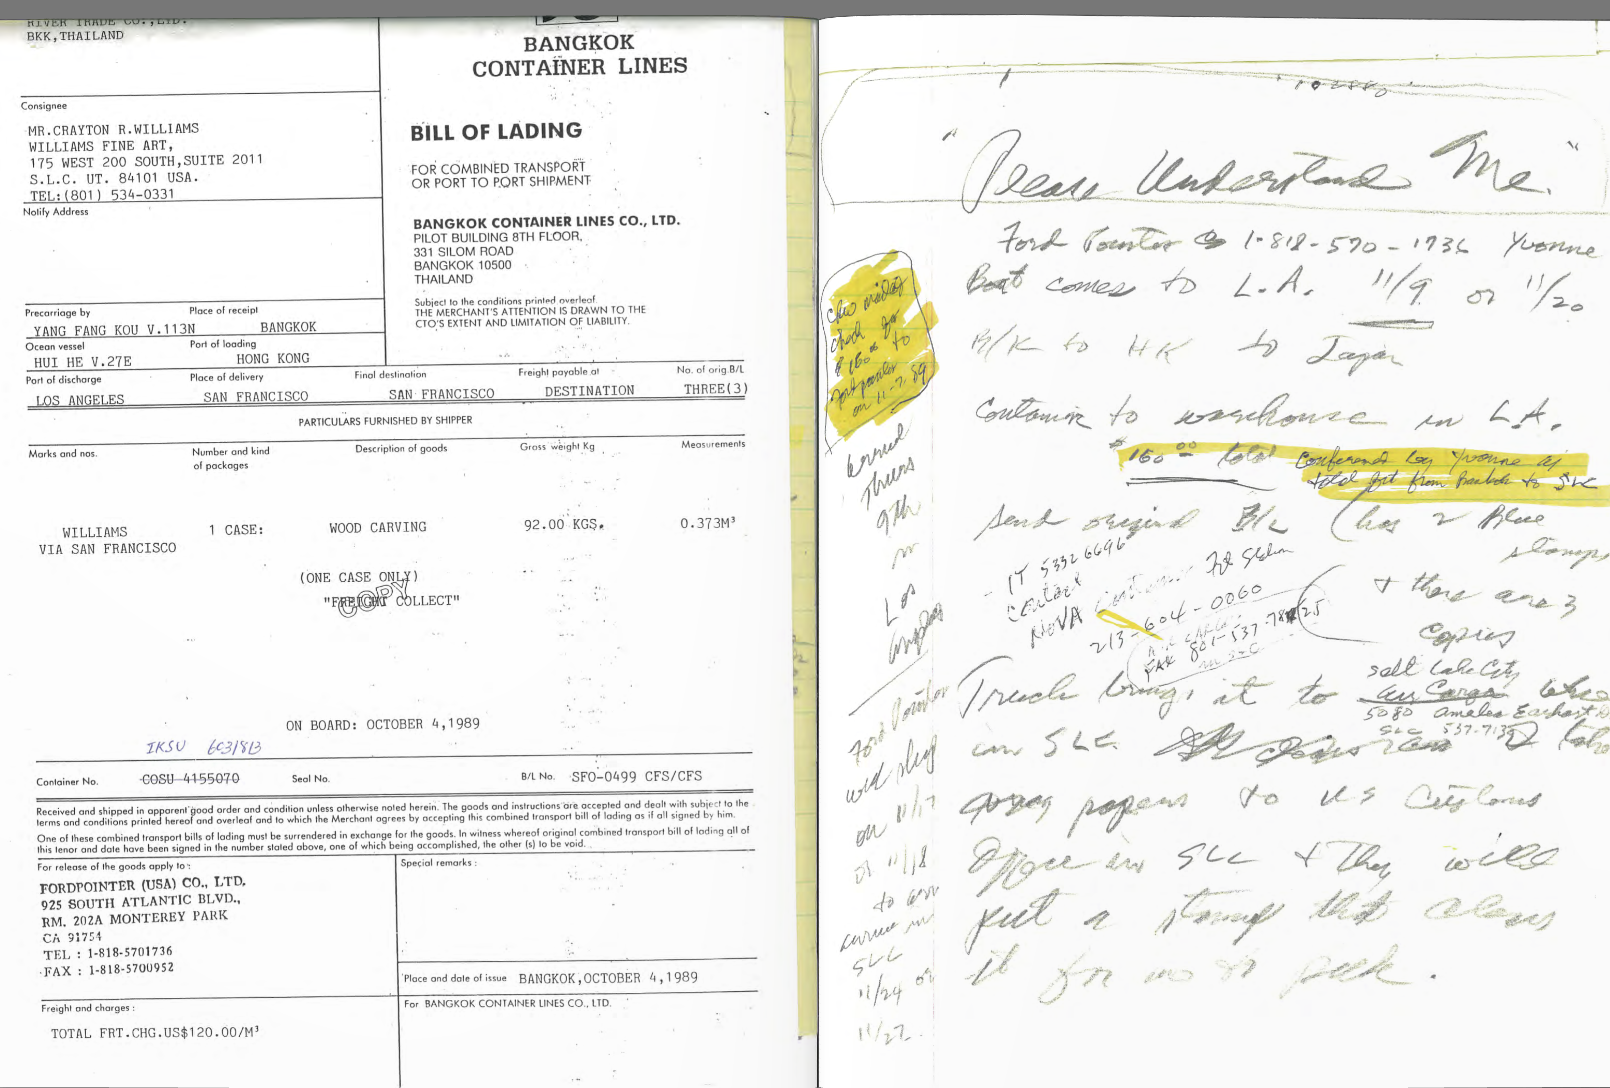 RIVER TRADE CO.,LTD.
BKK,THAILAND
BANGKOK
CONTAINER LINES
Consignee
MR.CRAYTON R.WILLIAMS
WILLIAMS FINE ART,
175 WEST 200 SOUTH,SUITE 2011
S.L.C. UT. 84101 USA.
TEL:(801) 534-0331
Notify Address
BILL OF LADING
FOR COMBINED TRANSPORT
OR PORT TO PORT SHIPMENT
BANGKOK CONTAINER LINES CO., LTD.
PILOT BUILDING 8TH FLOOR,
331 SILOM ROAD
BANGKOK 10500
THAILAND
Subject to the conditions printed overleaf.
THE MERCHANT'S ATTENTION IS DRAWN TO THE
CTO'S EXTENT AND LIMITATION OF LIABILITY.
Precarriage by Place of receipt
YANG FANG KOU V.113N BANGKOK
Ocean vessel Port of loading
HUI HE V.27E HONG KONG
Port of discharge Place of delivery Final destination Freight payable at No. of orig.B/L
LOS ANGELES SAN FRANCISCO SAN FRANCISCO DESTINATION THREE(3)
PARTICULARS FURNISHED BY SHIPPER
Marks and nos. Number and kind of packages Description of goods Gross weight Kg Measurements
WILLIAMS 1 CASE: WOOD CARVING 92.00 KGS. 0.373M³
VIA SAN FRANCISCO
(ONE CASE ONLY)
"FREIGHT COLLECT"
COPY
ON BOARD: OCTOBER 4,1989
IKSU 603/813
Container No. COSU 4155070 Seal No. B/L No. SFO-0499 CFS/CFS
Received and shipped in apparent good order and condition unless otherwise noted herein. The goods and instructions are accepted and dealt with subject to the
terms and conditions printed hereof and overleaf and to which the Merchant agrees by accepting this combined transport bill of lading as if all signed by him.
One of these combined transport bills of lading must be surrendered in exchange for the goods. In witness whereof original combined transport bill of lading all of
this tenor and date have been signed in the number stated above, one of which being accomplished, the other (s) to be void.
For release of the goods apply to: Special remarks:
FORDPOINTER (USA) CO., LTD.
925 SOUTH ATLANTIC BLVD.,
RM. 202A MONTEREY PARK
CA 91754
TEL : 1-818-5701736
FAX : 1-818-5700952
Place and date of issue BANGKOK,OCTOBER 4,1989
Freight and charges: For BANGKOK CONTAINER LINES CO., LTD.
TOTAL FRT.CHG.US$120.00/M³
"Please Understand Me."
Ford Pointer @ 1-818-570-1736 Yvonne
Boat comes to L.A. 11/9 or 11/20
B/K to HK to Japan
Container to warehouse in L.A.
$160.00 total confirmed by Yvonne as
total frt from Bankok to SLC
Send original B/L (has 2 Blue
stamps
+ there are 3
copies
IT 53326696
Contact
NOVA Container
213-604-0060
FAX 801-537-
in SLC
Truck brings it to Salt Lake City
Air Cargo
5080 Amelia Earhart D
SLC 537-713
in SLC.
papers to US Customs
Office in SLC + They will
put a stamp that clears
it for us to pick.
check for
$160.00 to
Ford pointer
on 11-7-89
arrived
thurs
9th
in
Los
Angeles
Ford Pointer
will ship
on 11/17
or 11/18
to arrive
SLC
11/24 or
11/27.